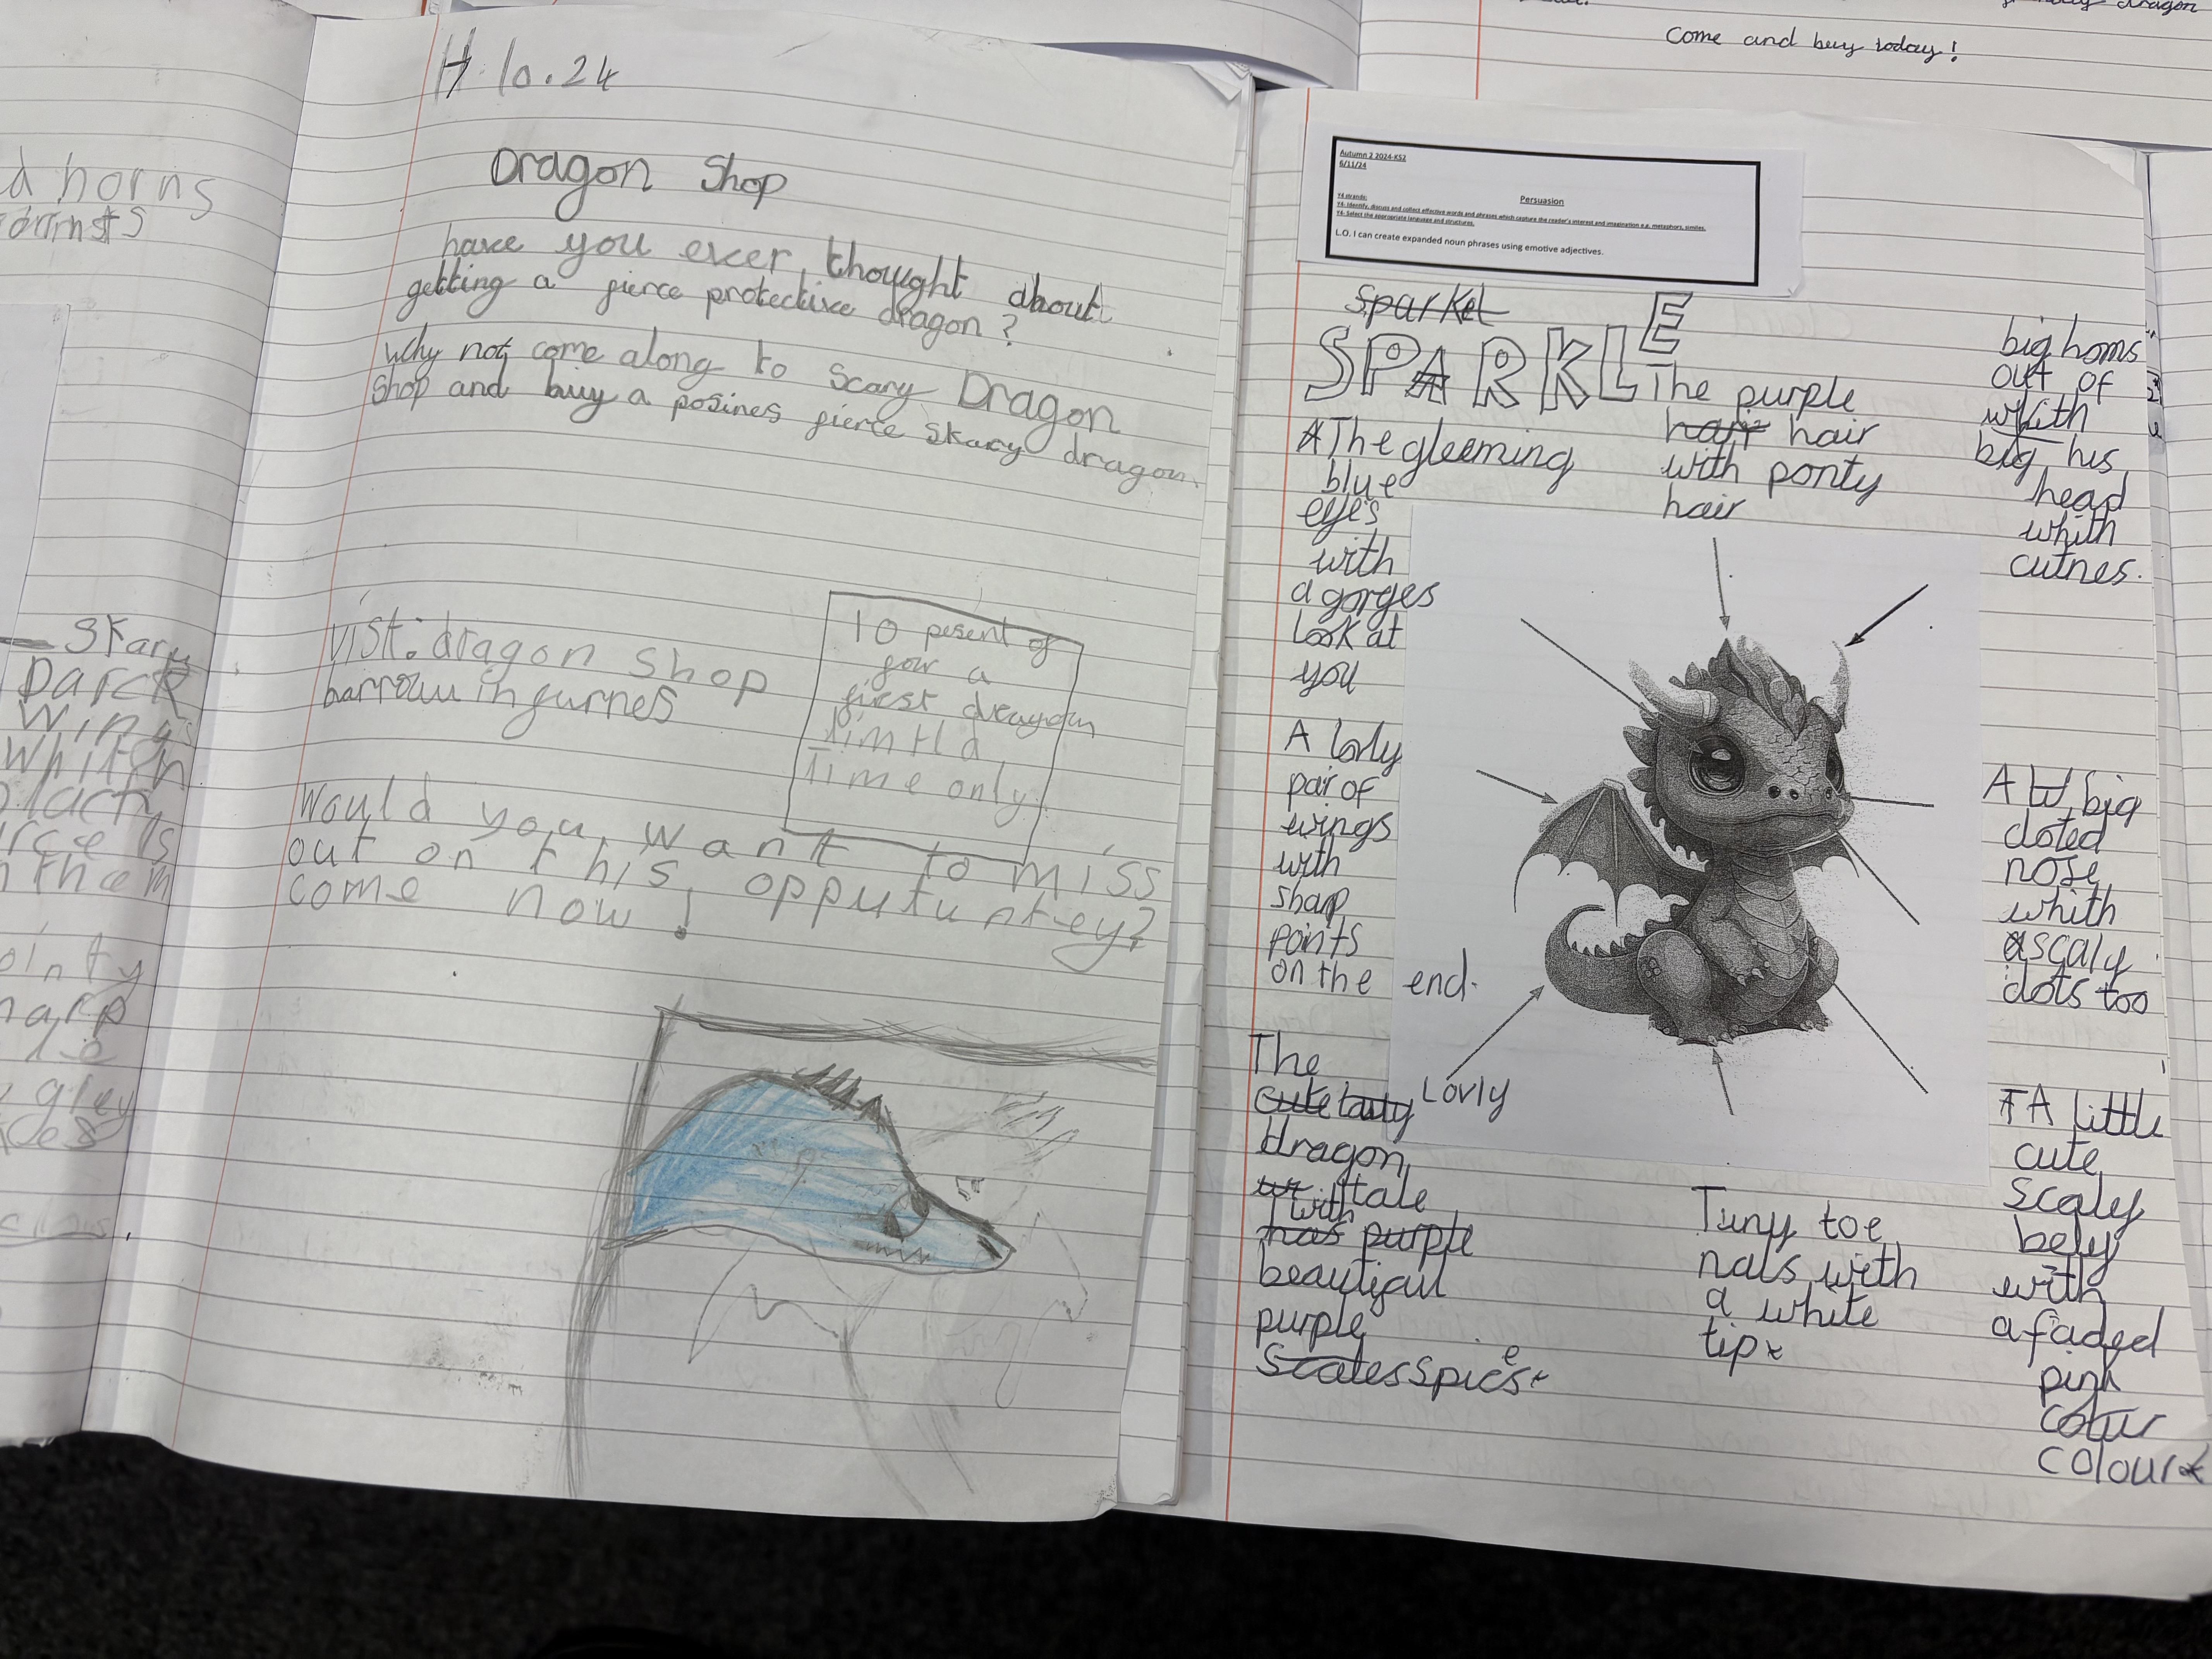 d horns
Skary
Darck
wings
whith
them
10.24
Dragon Shop
have you ever thought about
getting a fierce protective dragon?
why not come along to Scary Dragon
Shop and buy a posines fierce skary dragon.
vist: dragon shop
barrow in furnes
10 pesent of
for a
first dragon
limtid
Time only!
Would you want to miss
out on this opputuntey?
come now!
dragon
Come and buy today!
Autumn 2 2024-KS2
6/11/24
Persuasion
Y4 strands:
Y4- Identify, discuss and collect effective words and phrases which capture the reader's interest and imagination e.g. metaphors, similes.
Y4- Select the appropriate language and structures.
L.O. I can create expanded noun phrases using emotive adjectives.
Sparkel
SPARKLE
The gleeming
blue
eyes
with
a gorges
look at
you
The purple
hair hair
with ponty
hair
big horns
out of
whith
big his
head
whith
cutnes.
A lovly
pair of
wings
with
sharp
points
on the end.
A big
doted
nose
whith
scaly
dots too
The
cute Lovly
dragon
tale
with
has purple
beautifull
purple
Scales Spices
Tuny toe
nals with
a white
tip
A little
cute
scaley
bely
with
a faded
pink
colur
colour